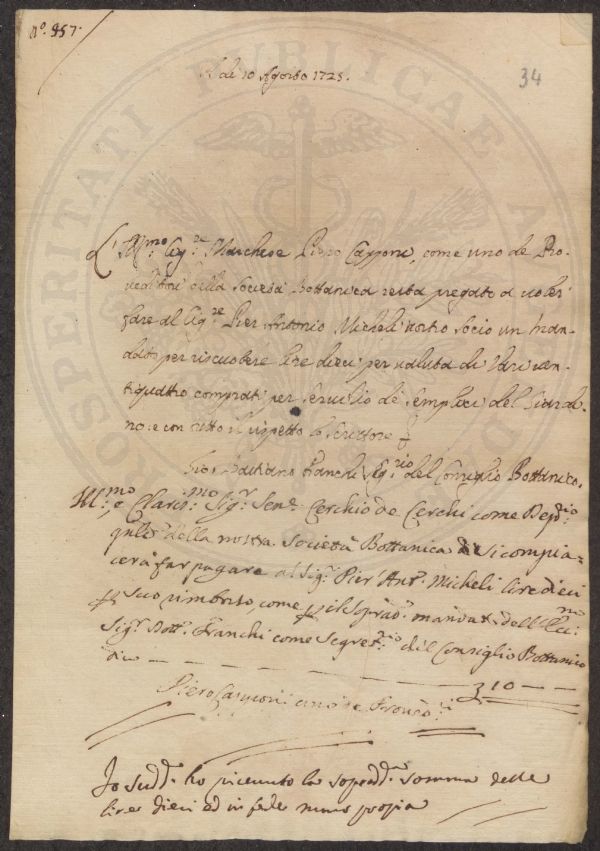 nº. 957.
34
A dì 10 Agosto 1725.
L'Ill:mo Sig:re Marchese Piero Capponi, come uno de Pro-
veditori della Società Bottanica resta pregato a voler
fare al Sig:re Pier Antonio Micheli nostro socio un man-
dato per riscuotere lire dieci per valuta di Vasi ven-
tiquattro comprati per servizio de semplici del Giardi-
no: e con tutto il rispetto lo scrittore
Gio: Bastiano Franchi Seg:rio del Consiglio Bottanico.
Ill:mo, e Claris:mo Sig:r Sen:e Cerchio de Cerchi come Dep:
della nostra Società Bottanica si compia-
cerà far pagare al Sig:r Pier' Ant:o Micheli lire dieci
suo rimborso, come mandat: dell'
Sig:r Dott:r Franchi come Segret:rio del Consiglio Bottanico
dico 10
Piero Capponi uno de
Io sudd:o ho ricevuto la sopradd:a somma delle
lire dieci ed in fede mano propia
PROSPERITATI PUBLICAE